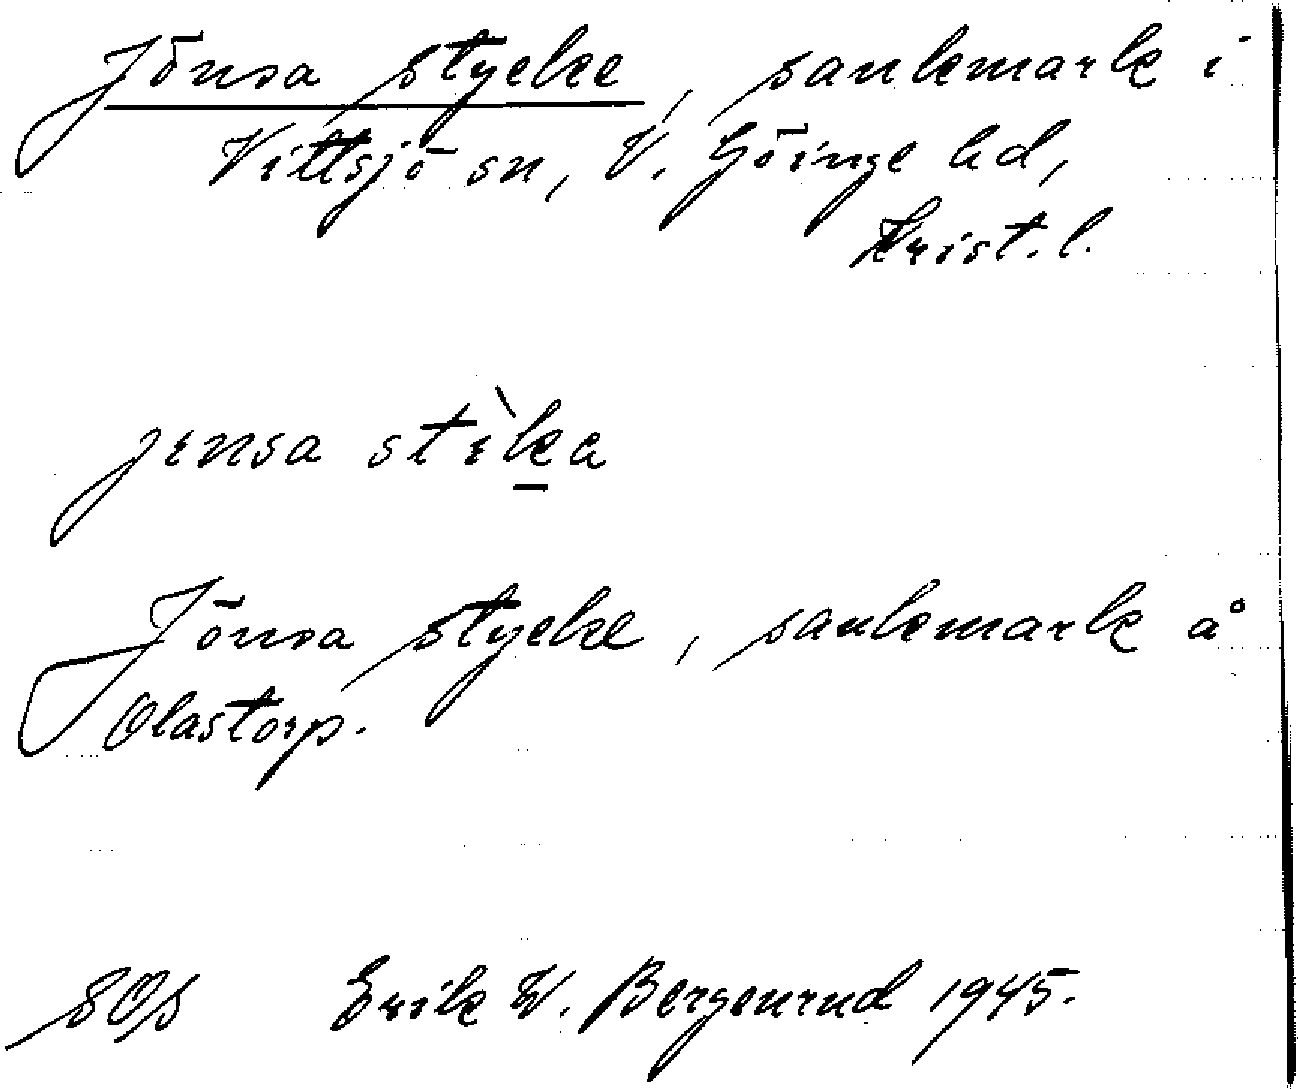 Jönsa stycke, sankmark i
Vittsjö sn, V. Göinge hd,
Krist. l.
jensa stìka
Jönsa stycke, sankmark å
Olastorp.
SOS Erik W. Bergenrud 1945.